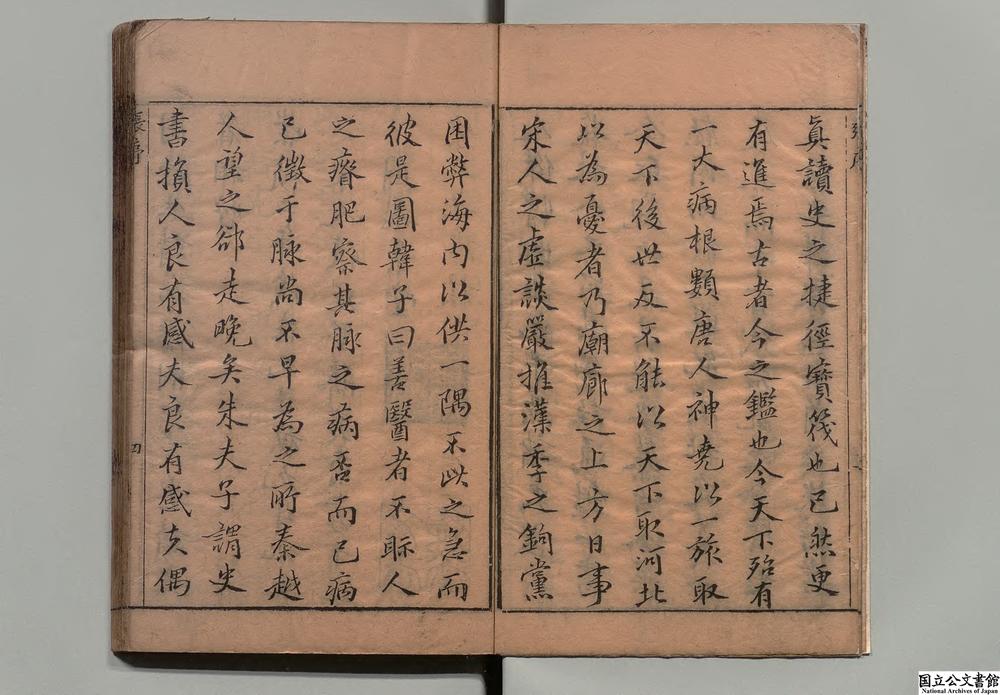 真讀史之捷徑寶筏也已然更
有進焉古者今之鑑也今天下殆有
一大病根類唐人神堯以一旅取
天下後世反不能以天下取河北
以為憂者乃廟廊之上方日事
宋人之虛談嚴推漢季之鉤黨
困弊海內以供一隅不此之急而
彼是圖韓子曰善醫者不眎人
之瘠肥察其脉之病否而已病
已徵于脉尚不早為之所秦越
人望之郤走晚矣朱夫子謂史
書損人良有感夫良有感夫偶
張序
四
国立公文書館
National Archives of Japan